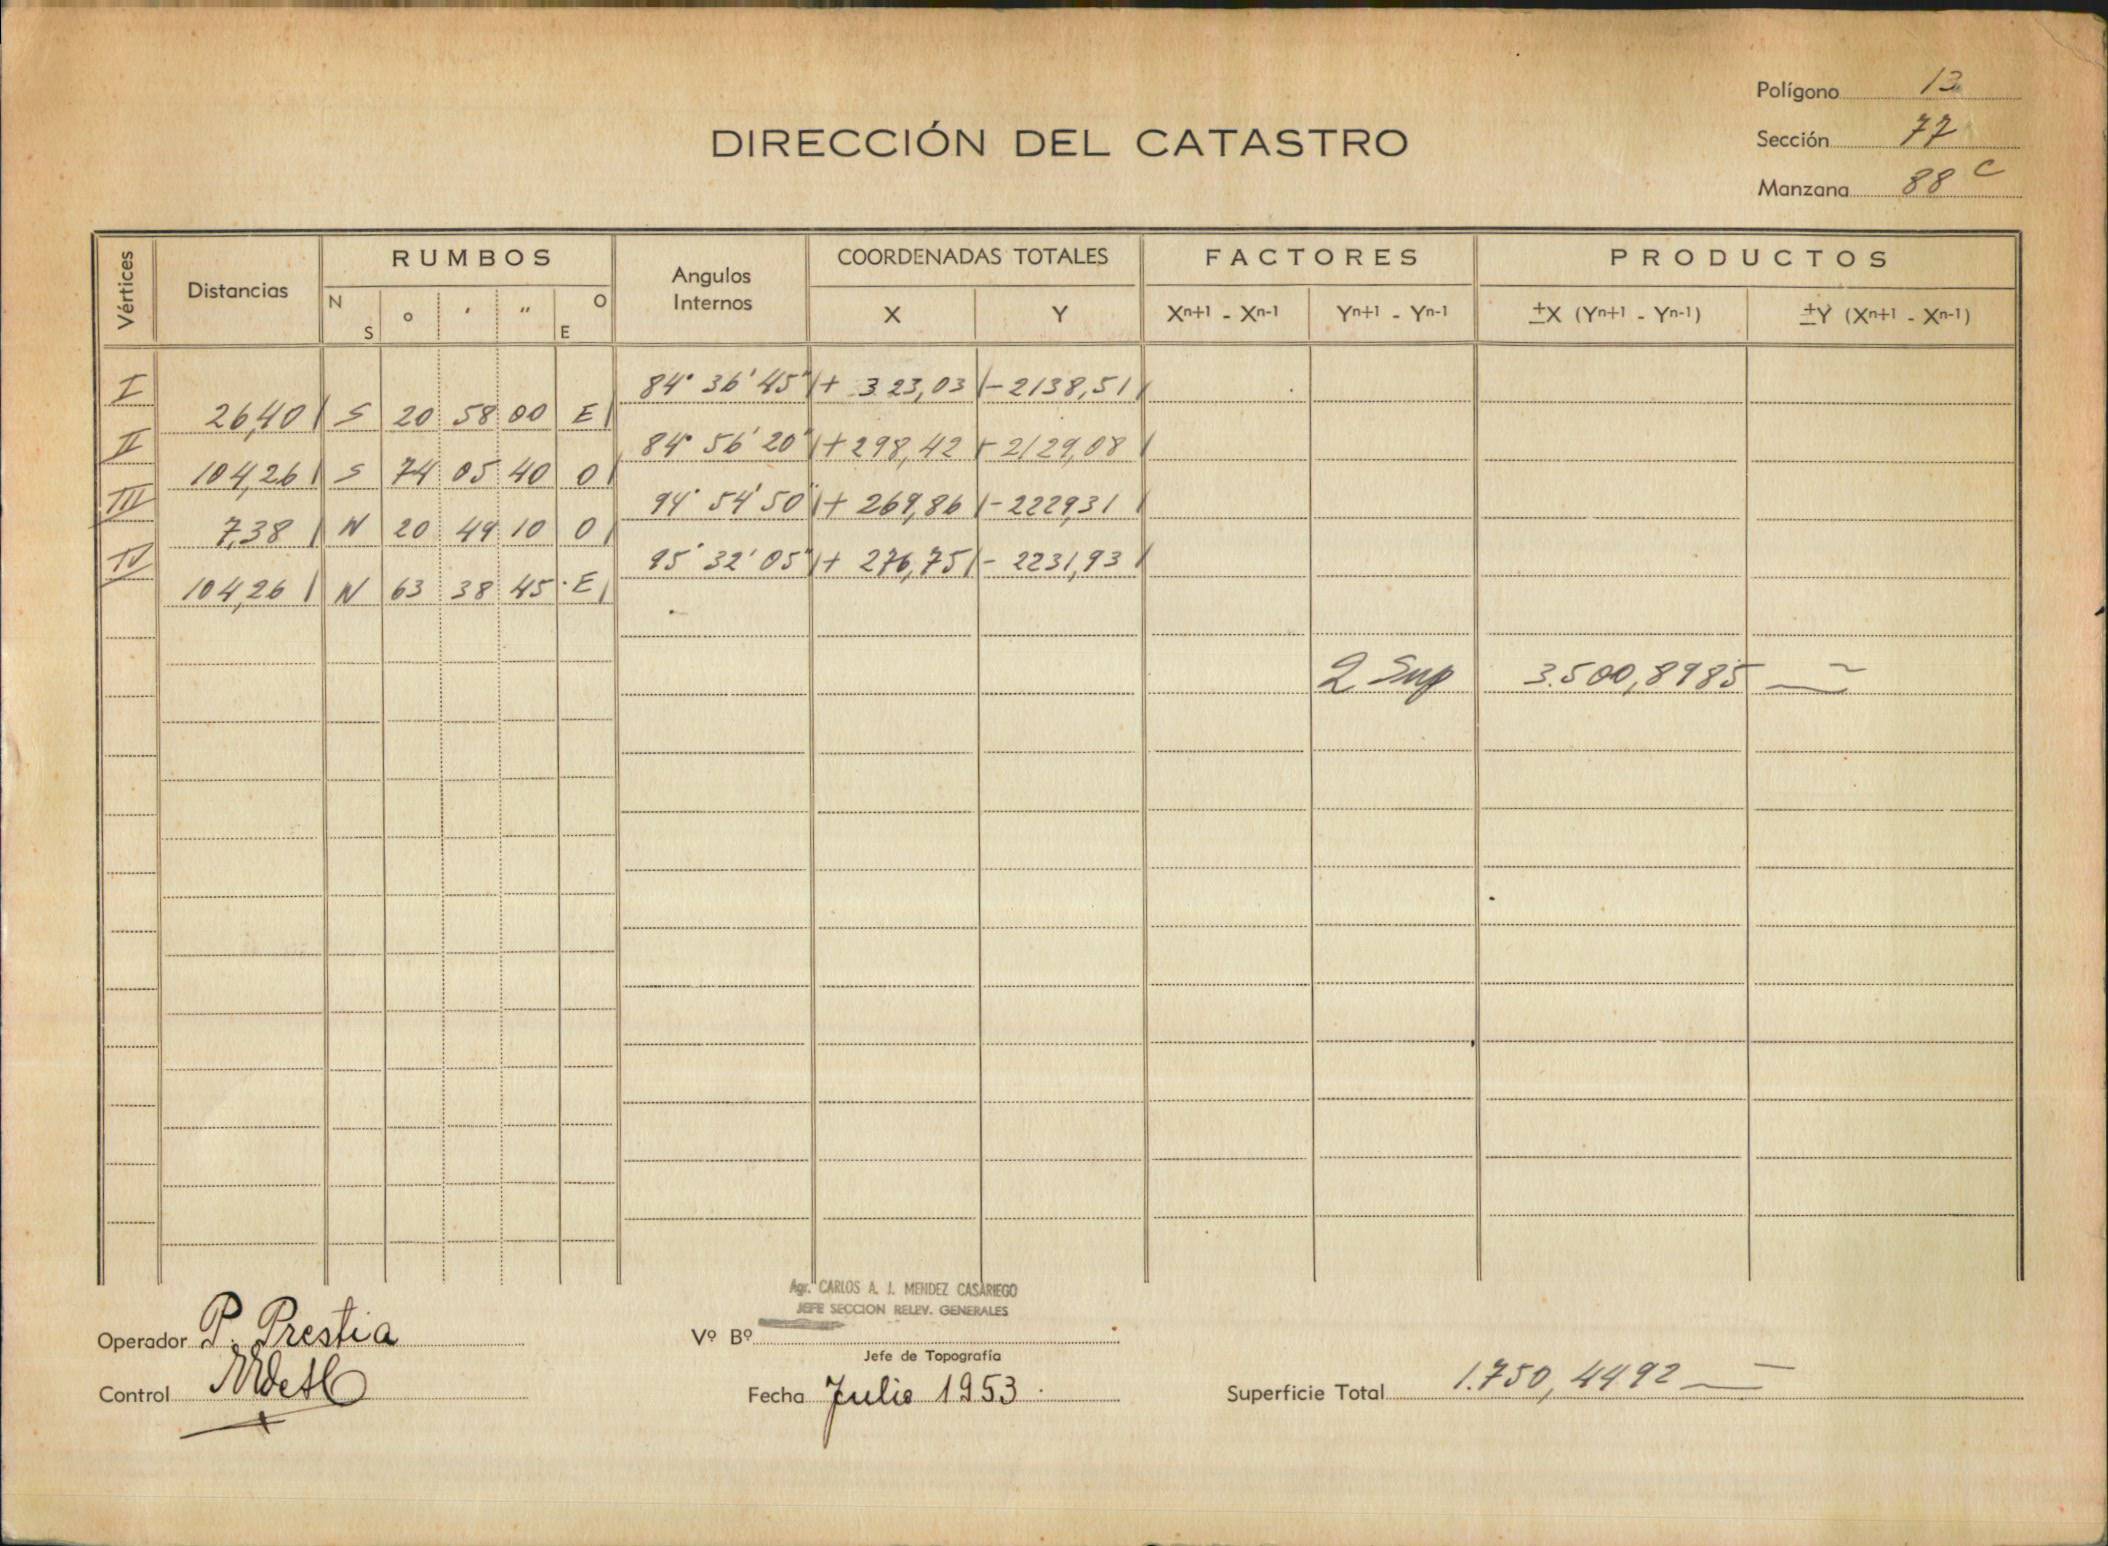 Polígono 13
DIRECCIÓN DEL CATASTRO
Sección 77
Manzana 88 c
Vértices Distancias RUMBOS Angulos Internos COORDENADAS TOTALES FACTORES PRODUCTOS
N S o ' " O E X Y Xn+1 - Xn-1 Yn+1 - Yn-1 ±X (Yn+1 - Yn-1) ±Y (Xn+1 - Xn-1)
I 84° 36' 45" + 323,03 - 2138,51
26,40 S 20 58 00 E
II 84° 56' 20" + 298,42 - 2129,08
104,26 S 74 05 40 O
III 94° 54' 50" + 269,86 - 2229,31
7,38 N 20 49 10 O
IV 95° 32' 05" + 276,75 - 2231,93
104,26 N 63 38 45 E
2 Sup 3.500,8985
Agr. CARLOS A. J. MENDEZ CASARIEGO
JEFE SECCION RELEV. GENERALES
Operador P. Prestia
Vº Bº
Jefe de Topografía
Control
Fecha Julio 1953.
Superficie Total 1.750,4492